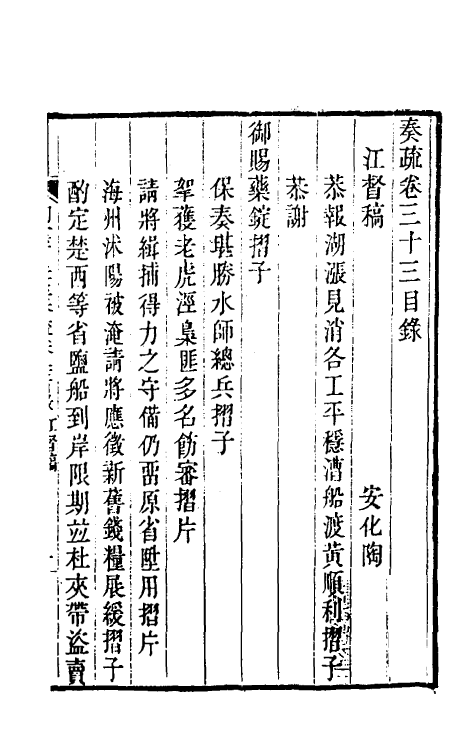 奏疏卷三十三目錄
江督稿　安化陶
恭報湖漲見消各工平穩漕船渡黃順利摺子
恭謝
御賜藥錠摺子
保奏堪勝水師總兵摺子
拏獲老虎涇梟匪多名飭審摺片
請將緝捕得力之守備仍畱原省陞用摺片
海州沭陽被淹請將應徵新舊錢糧展緩摺子
酌定楚西等省鹽船到岸限期竝杜夾帶盜賣